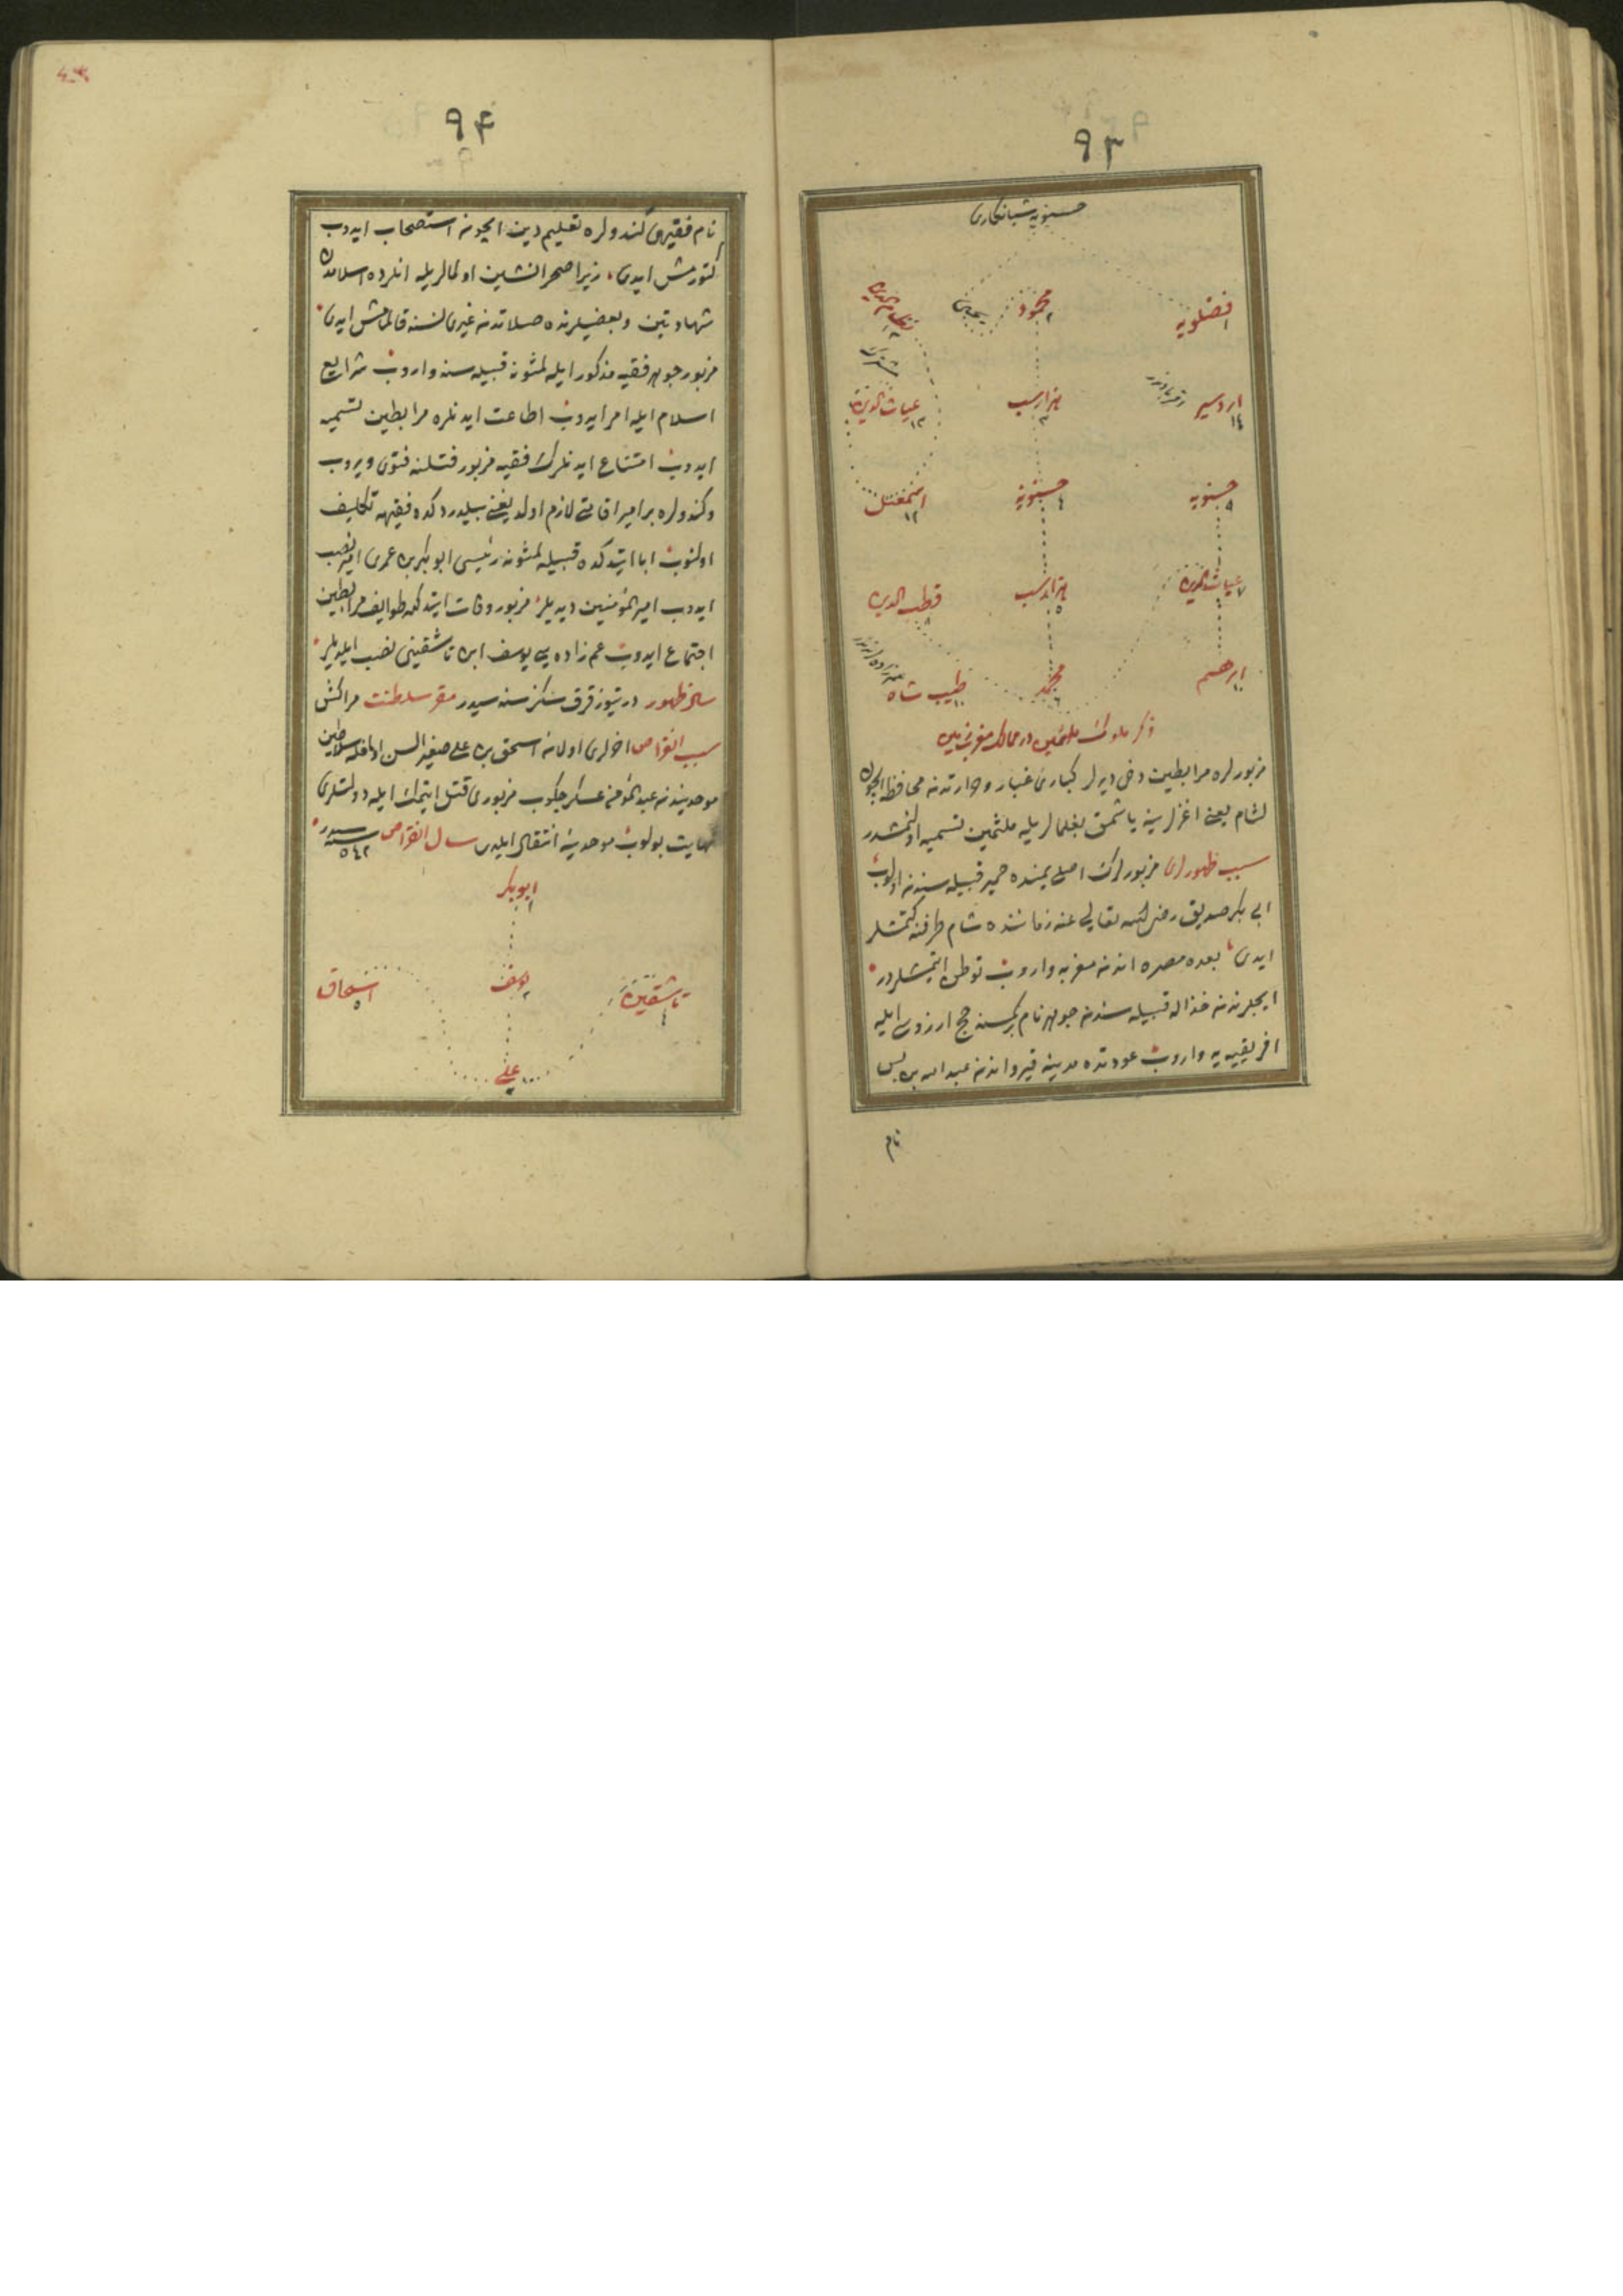 ٩٣
حسنويه شبانكاری
فضلويه
١
محمود
٢
يحيى
نظام الدين
اردشير
١٤
هزارسب
٣
غياث الدين
١٢
حسنويه
٩
حسنويه
٤
اسمعيل
١٢
غياث الدين
٧
هزارسب
٥
قطب الدين
٨
ابرهيم
١٠
محمد
٦
طيب شاه
ذكر ملوك ملثمين در ممالك مغرب زمين
مزبورلره مرابطين دخی ديرلر كباری غبار وحرارتدن محافظه ايچون
لثام يعنی اغزلرينه ياشمق بغلمالريله ملثمين تسميه اولنمشدر
سبب ظهورلری مزبورلرك اصلی يمنده حمير قبيله سندن اولوب
ابی بكر صديق رضی الله تعالی عنه زماننده شام طرفنه كتمشلر
ايدی بعده مصره اندن مغربه واروب توطن ايتمشلردر
ايچلرندن خذاله قبيله سندن جوهر نام بركمسنه حج ارزوسی ايله
افريقييه يه واروب عودتده مدينه قيرواندن عبدالله بن يس
نام
٩٤
نام فقيهی كندولره تعليم دين ايچون استصحاب ايدوب
كتورمش ايدی زيرا صحرانشين اولمالريله انلرده اسلامدن
شهادتين وبعضيلرنده صلاتدن غيری نسنه قالمامش ايدی
مزبور جوهر فقيه مذكور ايله لمتونه قبيله سنه واروب شرايع
اسلام ايله امر ايدوب اطاعت ايدنلره مرابطين تسميه
ايدوب امتناع ايدنلرك فقيه مزبور قتلنه فتوی ويروب
وكندولره بر امير اقامتی لازم اولديغنی بيلدردكده فقيهه تكليف
اولنوب ابا ايتدكده قبيله لمتونه رئيسی ابوبكر بن عمری امير نصب
ايدوب امير المؤمنين ديديلر مزبور وفات ايتدكده طوايف مرابطين
اجتماع ايدوب عم زاده سی يوسف ابن تاشقينی نصب ايلديلر
سال ظهور درتيوز قرق سكز سنه سيدر مقر سلطنت مراكش
سبب انقراض اخرلری اولان اسحق بن علی صغير السن اولمغله سلاطين
موحديندن عبدالمؤمن عسكر چكوب مزبوری قتل ايتمك ايله دولتلری
نهايت بولوب موحدينه انتقال ايلدی سال انقراض ٥٤٢ سنه سيدر
ابوبكر
١
تاشقين
٤
يوسف
٢
اسحاق
٥
علی
٣